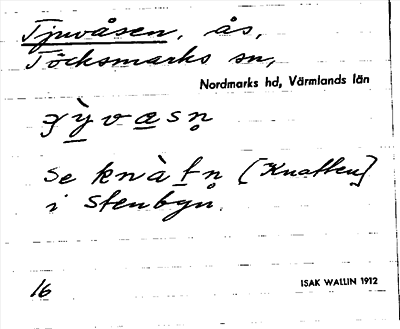 Tjuvåsen, ås,
Töcksmarks sn,
Nordmarks hd, Värmlands län
se knàtn̥ [Knatten]
i Stenbyn.
16
ISAK WALLIN 1912